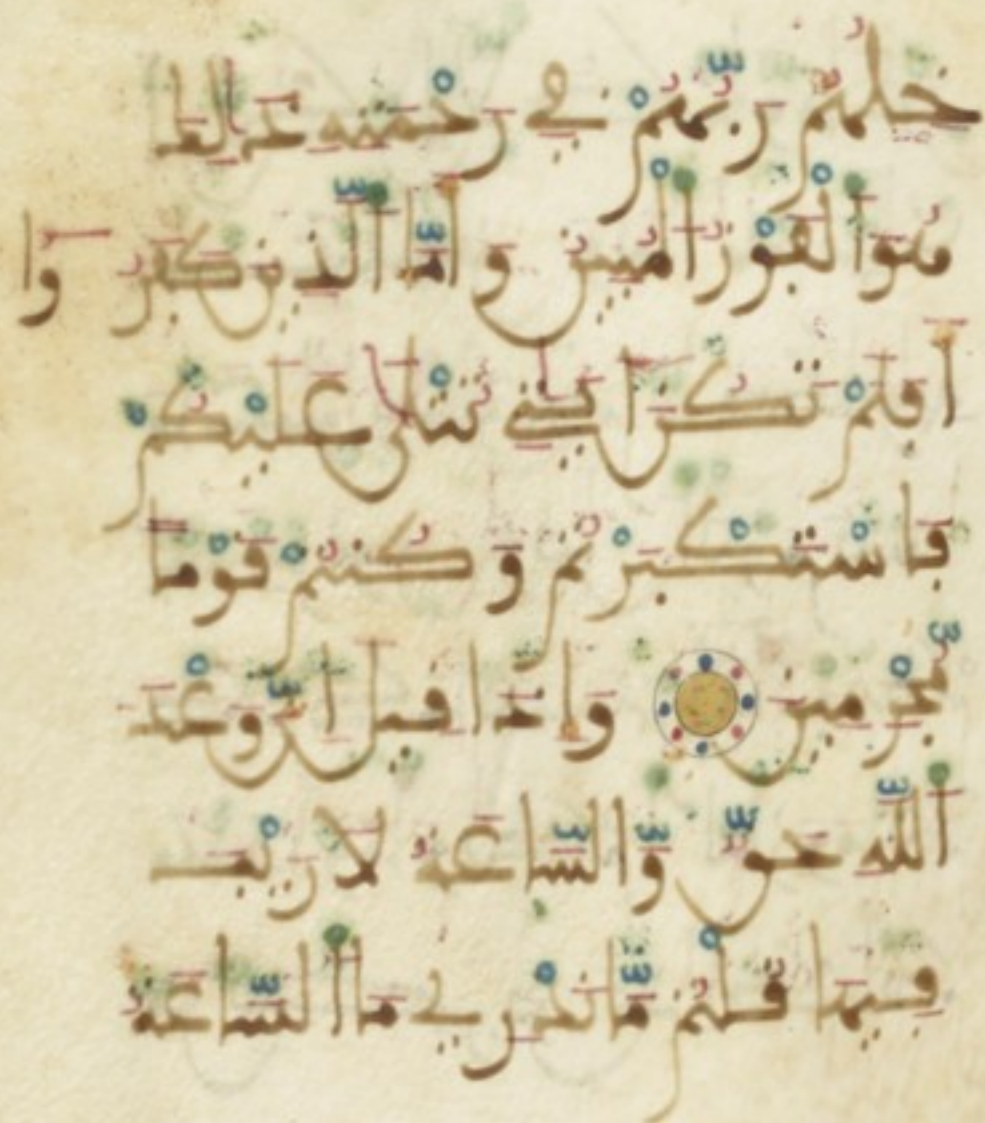 خِلُهُمْ رَبُّهُمْ فِي رَحْمَتِهِ ذَٰلِكَ
هُوَ الْفَوْزُ الْمُبِينُ وَأَمَّا الَّذِينَ كَفَرُوا
أَفَلَمْ تَكُنْ ءَايَٰتِي تُتْلَىٰ عَلَيْكُمْ
فَاسْتَكْبَرْتُمْ وَكُنْتُمْ قَوْمًا
مُّجْرِمِينَ وَإِذَا قِيلَ إِنَّ وَعْدَ
اللَّهِ حَقٌّ وَّالسَّاعَةُ لَا رَيْبَ
فِيهَا قُلْتُمْ مَّا نَدْرِي مَا السَّاعَةُ